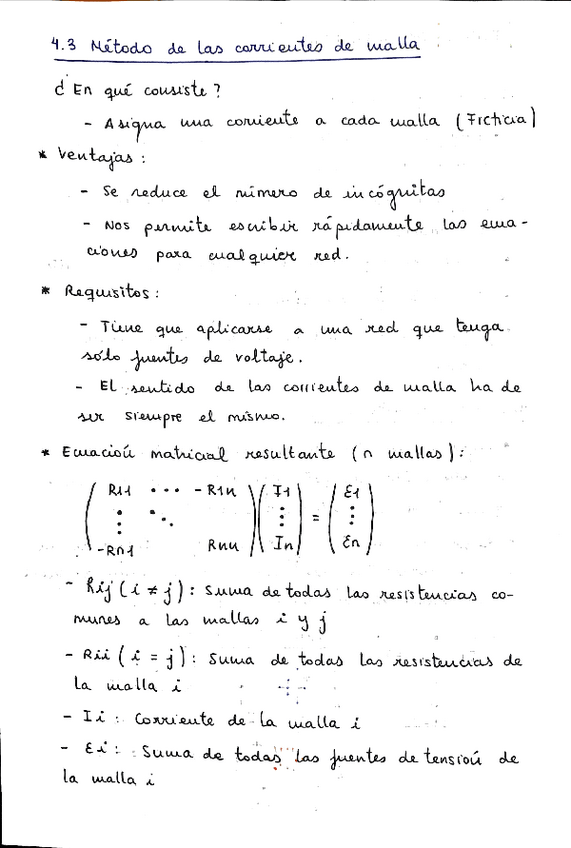 4.3 Método de las corrientes de malla
¿ En qué consiste ?
- Asigna una corriente a cada malla ( Ficticia )
* Ventajas :
- Se reduce el número de incógnitas
- Nos permite escribir rápidamente las ecua-
ciones para cualquier red.
* Requisitos :
- Tiene que aplicarse a una red que tenga
sólo fuentes de voltaje.
- El sentido de las corrientes de malla ha de
ser siempre el mismo.
* Ecuación matricial resultante ( n mallas ) :
( R11 ... -R1n ) ( I1 ) = ( Ɛ1 )
( ⋮ ⋱ ) ( ⋮ ) ( ⋮ )
( -Rn1 Rnn ) ( In ) ( Ɛn )
- Rij ( i ≠ j ) : Suma de todas las resistencias co-
munes a las mallas i y j
- Rii ( i = j ) : Suma de todas las resistencias de
la malla i
- Ii : Corriente de la malla i
- Ɛi : Suma de todas las fuentes de tensión de
la malla i